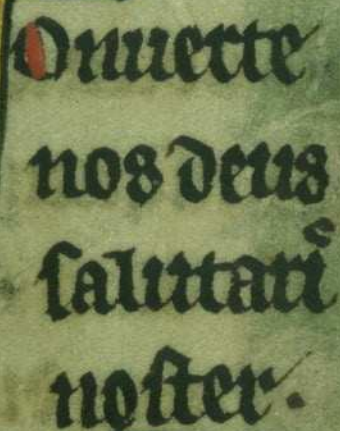 Onuerte
nos deus
salutari͛
noster.